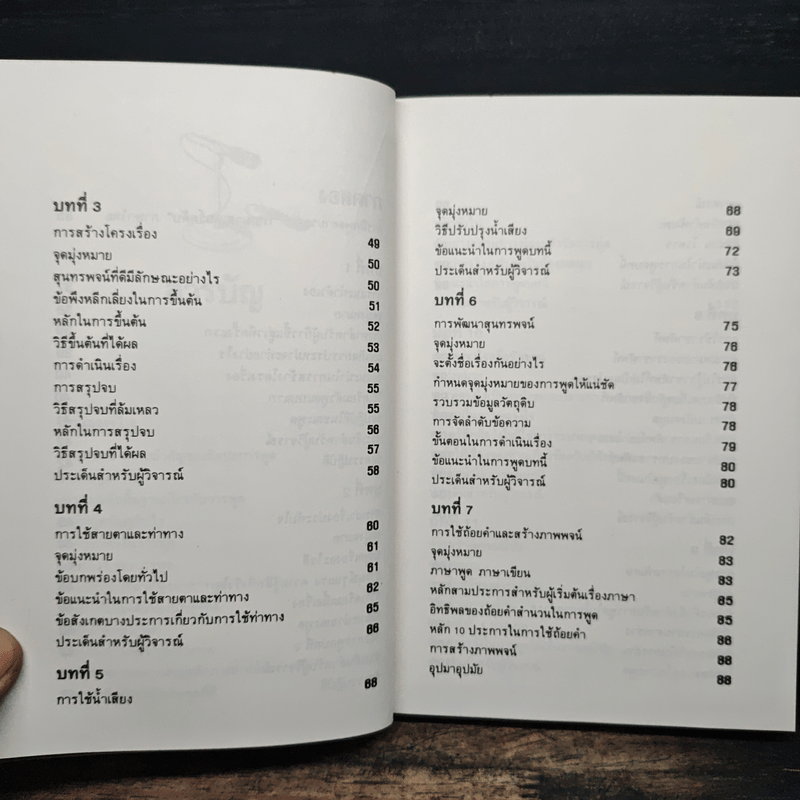 บทที่ 3
การสร้างโครงเรื่อง 49
จุดมุ่งหมาย 50
สุนทรพจน์ที่ดีมีลักษณะอย่างไร 50
ข้อพึงหลีกเลี่ยงในการขึ้นต้น 51
หลักในการขึ้นต้น 52
วิธีขึ้นต้นที่ได้ผล 53
การดำเนินเรื่อง 54
การสรุปจบ 55
วิธีสรุปจบที่ล้มเหลว 55
หลักในการสรุปจบ 56
วิธีสรุปจบที่ได้ผล 57
ประเด็นสำหรับผู้วิจารณ์ 58
บทที่ 4
การใช้สายตาและท่าทาง 60
จุดมุ่งหมาย 61
ข้อบกพร่องโดยทั่วไป 61
ข้อแนะนำในการใช้สายตาและท่าทาง 62
ข้อสังเกตบางประการเกี่ยวกับการใช้ท่าทาง 65
ประเด็นสำหรับผู้วิจารณ์ 66
บทที่ 5
การใช้น้ำเสียง 68
จุดมุ่งหมาย 68
วิธีปรับปรุงน้ำเสียง 69
ข้อแนะนำในการพูดบทนี้ 72
ประเด็นสำหรับผู้วิจารณ์ 73
บทที่ 6
การพัฒนาสุนทรพจน์ 75
จุดมุ่งหมาย 76
จะตั้งชื่อเรื่องกันอย่างไร 76
กำหนดจุดมุ่งหมายของการพูดให้แน่ชัด 77
รวบรวมข้อมูลวัตถุดิบ 78
การจัดลำดับข้อความ 78
ขั้นตอนในการดำเนินเรื่อง 79
ข้อแนะนำในการพูดบทนี้ 80
ประเด็นสำหรับผู้วิจารณ์ 80
บทที่ 7
การใช้ถ้อยคำและสร้างภาพพจน์ 82
จุดมุ่งหมาย 83
ภาษาพูด ภาษาเขียน 83
หลักสามประการสำหรับผู้เริ่มต้นเรื่องภาษา 85
อิทธิพลของถ้อยคำสำนวนในการพูด 85
หลัก 10 ประการในการใช้ถ้อยคำ 86
การสร้างภาพพจน์ 88
อุปมาอุปมัย 88